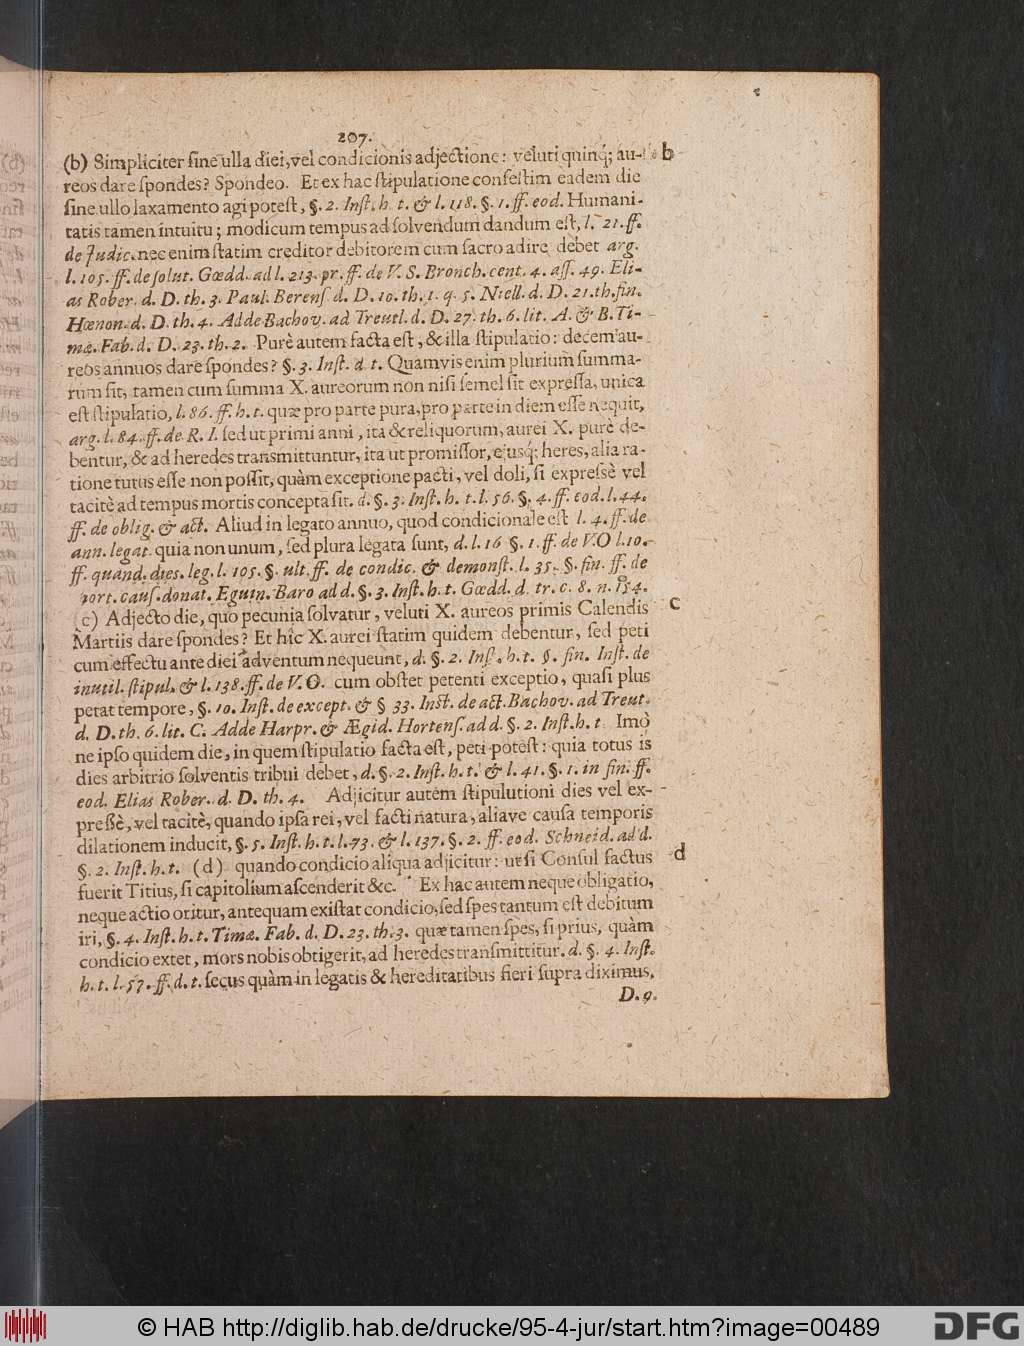 207.
(b) Simpliciter sine ulla diei, vel condicionis adjectione: veluti quinq́; au- b
reos dare spondes? Spondeo. Et ex hac stipulatione confestim eadem die
sine ullo laxamento agi potest, §. 2. Inst. h. t. & l. 118. §. 1. ff. eod. Humani-
tatis tamen intuitu; modicum tempus ad solvendum dandum est, l. 21. ff.
de Judic. nec enim statim creditor debitorem cum sacro adire debet arg.
l. 105. ff. de solut. Gœdd. ad l. 213. pr. ff. de V. S. Bronch. cent. 4. ass. 49. Eli-
as Rober. d. D. th. 3. Paul. Berens d. D. 10. th. 1. q. 5. Niell. d. D. 21. th. fin.
Hœnon. d. D. th. 4. Adde Bachov. ad Treutl. d. D. 27. th. 6. lit. A. & B. Ti-
mæ. Fab. d. D. 23. th. 2. Purè autem facta est, & illa stipulatio: decem au-
reos annuos dare spondes? §. 3. Inst. d. t. Quamvis enim plurium summa-
rum sit, tamen cum summa X. aureorum non nisi semel sit expressa, unica
est stipulatio, l. 86. ff. h. t. quæ pro parte pura, pro parte in diem esse nequit,
arg. l. 84. ff. de R. I. sed ut primi anni, ita & reliquorum, aurei X. purè de-
bentur, & ad heredes transmittuntur, ita ut promissor, ejusq́; heres, alia ra-
tione tutus esse non possit, quàm exceptione pacti, vel doli, si expressè vel
tacitè ad tempus mortis concepta sit. d. §. 3. Inst. h. t. l. 56. §. 4. ff. eod. l. 44.
ff. de oblig. & act. Aliud in legato annuo, quod condicionale est l. 4. ff. de
ann. legat. quia non unum, sed plura legata sunt, d. l. 16 §. 1. ff. de V.O l. 10.
ff. quand. dies. leg. l. 105. §. ult. ff. de condic. & demonst. l. 35. §. fin. ff. de
mort. caus. donat. Eguin. Baro ad d. §. 3. Inst. h. t. Gœdd. d. tr. c. 8. n. 154.
(c) Adjecto die, quo pecunia solvatur, veluti X. aureos primis Calendis c
Martiis dare spondes? Et hîc X. aurei statim quidem debentur, sed peti
cum effectu ante diei adventum nequeunt, d. §. 2. Inst. h. t. §. fin. Inst. de
inutil. stipul. & l. 138. ff. de V. O. cum obstet petenti exceptio, quasi plus
petat tempore, §. 10. Inst. de except. & § 33. Inst. de act. Bachov. ad Treut.
d. D. th. 6. lit. C. Adde Harpr. & Ægid. Hortens. ad d. §. 2. Inst. h. t Imò
ne ipso quidem die, in quem stipulatio facta est, peti potest: quia totus is
dies arbitrio solventis tribui debet, d. §. 2. Inst. h. t. & l. 41. §. 1. in fin. ff.
eod. Elias Rober. d. D. th. 4. Adjicitur autem stipulutioni dies vel ex-
preßè, vel tacitè, quando ipsa rei, vel facti natura, aliave causa temporis
dilationem inducit, §. 5. Inst. h. t. l. 73. & l. 137. §. 2. ff. eod. Schneid. ad d.
§. 2. Inst. h. t. (d) quando condicio aliqua adjicitur: ut si Consul factus d
fuerit Titius, si capitolium ascenderit &c. Ex hac autem neque obligatio,
neque actio oritur, antequam existat condicio, sed spes tantum est debitum
iri, §. 4. Inst. h. t. Timæ. Fab. d. D. 23. th. 3. quæ tamen spes, si prius, quàm
condicio extet, mors nobis obtigerit, ad heredes transmittitur. d. §. 4. Inst.
h. t. l. 57. ff. d. t. secus quàm in legatis & hereditatibus fieri supra diximus,
D. 9.
© HAB http://diglib.hab.de/drucke/95-4-jur/start.htm?image=00489
DFG